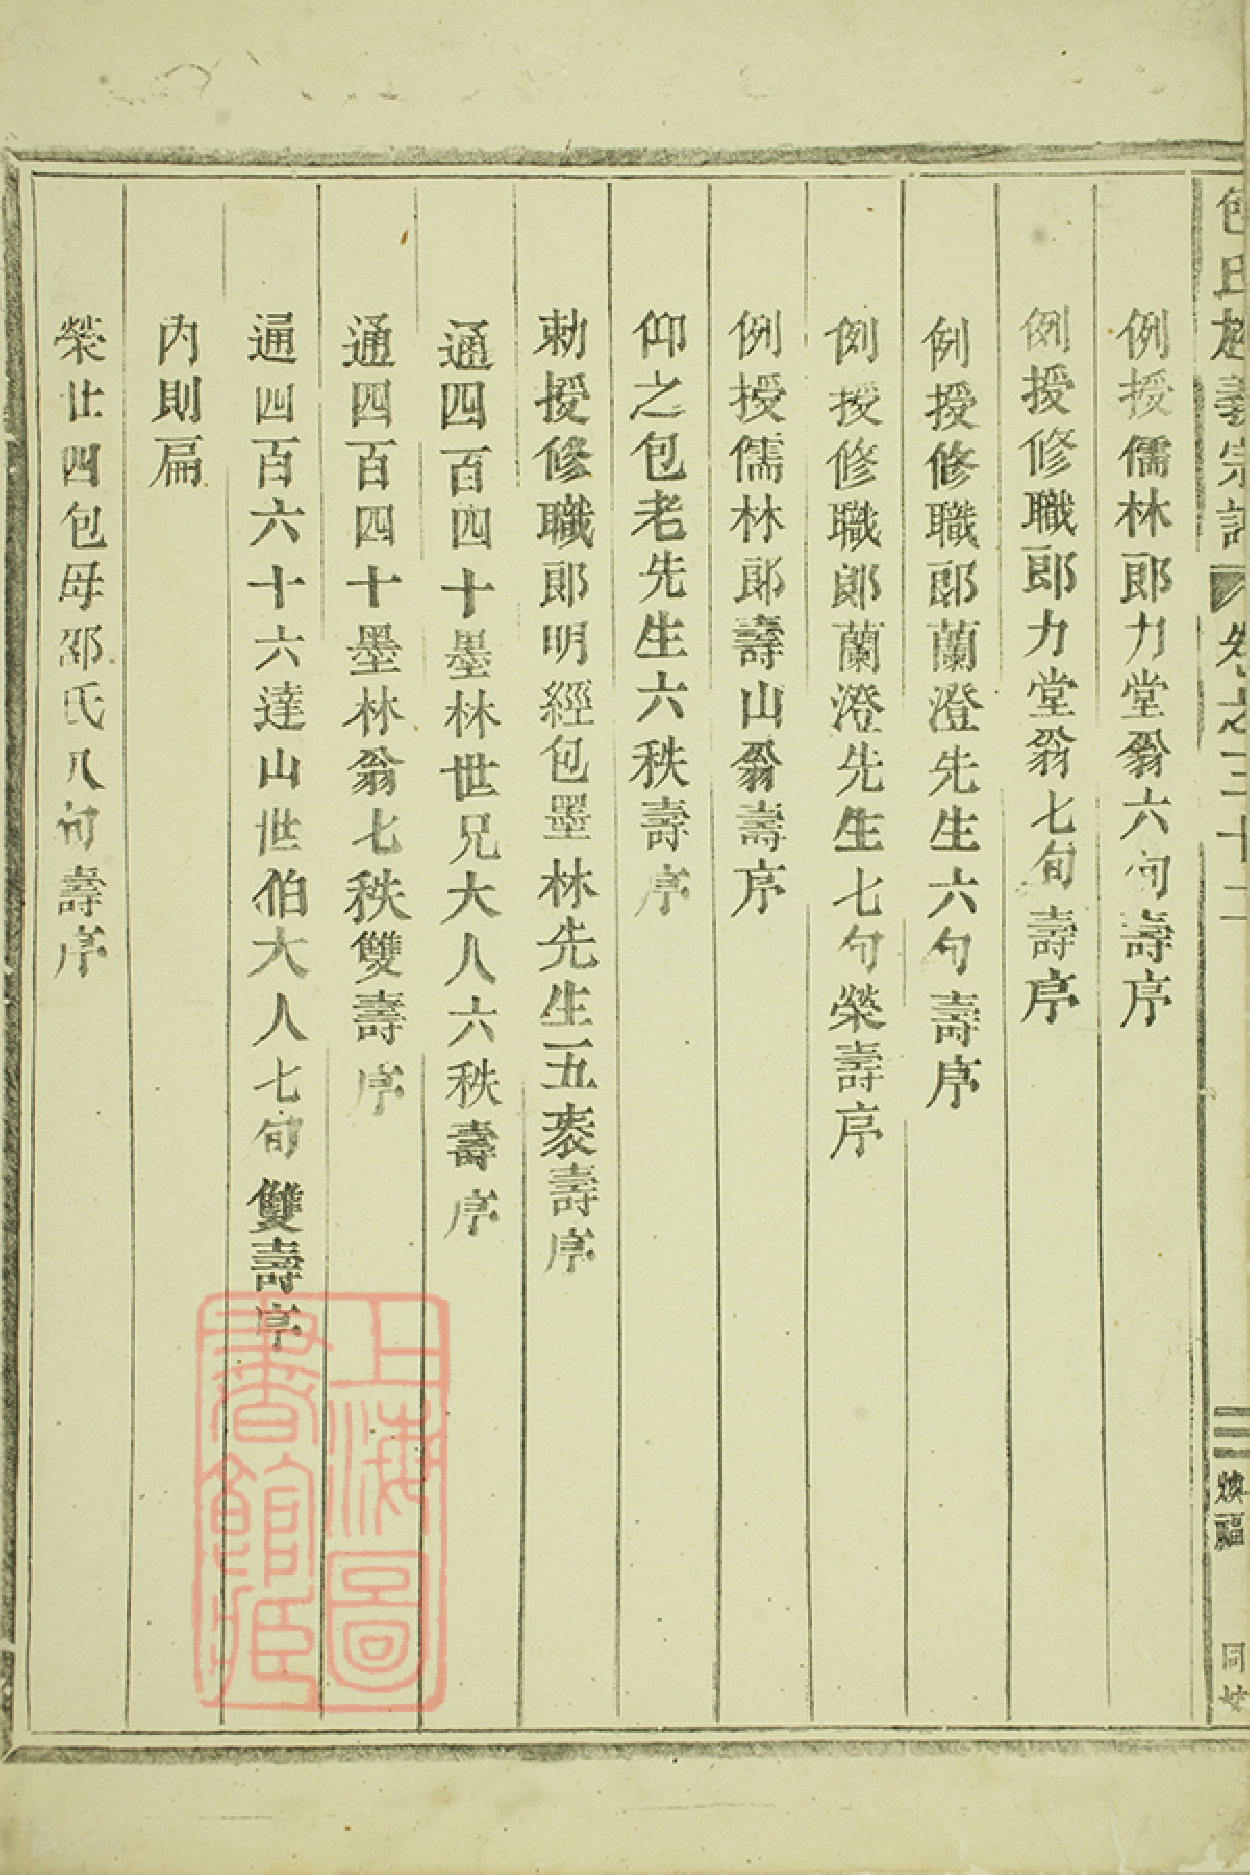 包氏 義宗譜 卷之三十二 三 同姓
例授儒林郎力堂翁六旬壽序
例授修職郎力堂翁七旬壽序
例授修職郎蘭澄先生六旬壽序
例授修職郎蘭澄先生七旬榮壽序
例授儒林郎壽山翁壽序
仰之包老先生六秩壽序
勅授修職郎明經包墨林先生五袠壽序
通四百四十墨林世兄大人六秩壽序
通四百四十墨林翁七秩雙壽序
通四百六十六達山世伯大人七旬雙壽序
內則扁
榮廿四包母邵氏八旬壽序
上海圖
書館藏